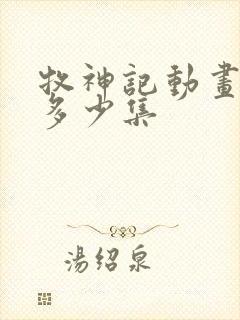 牧神記動畫
多少集
湯紹泉